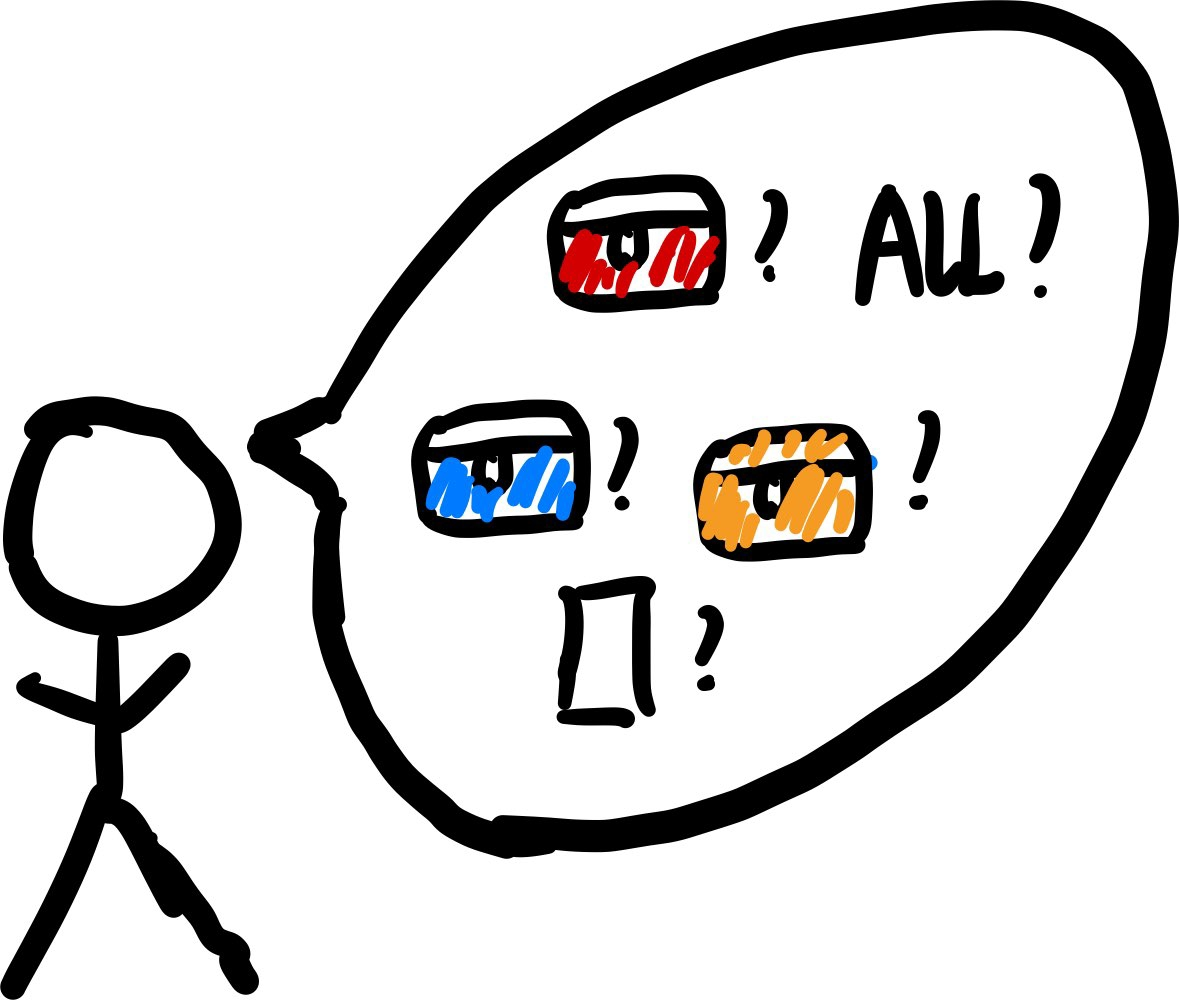 ? ALL?
? ?
?